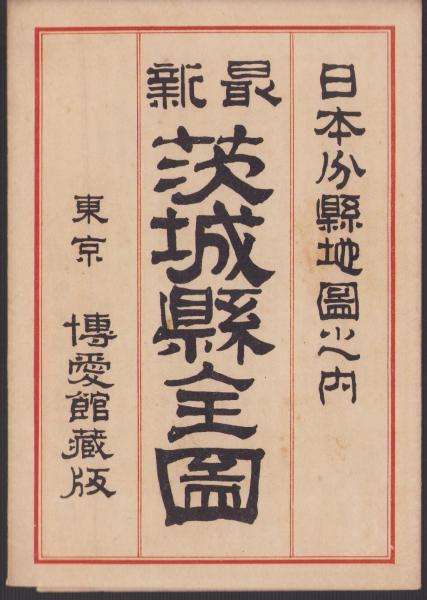 日本分縣地圖之内
最新
茨城縣全圖
東京 博愛館藏版